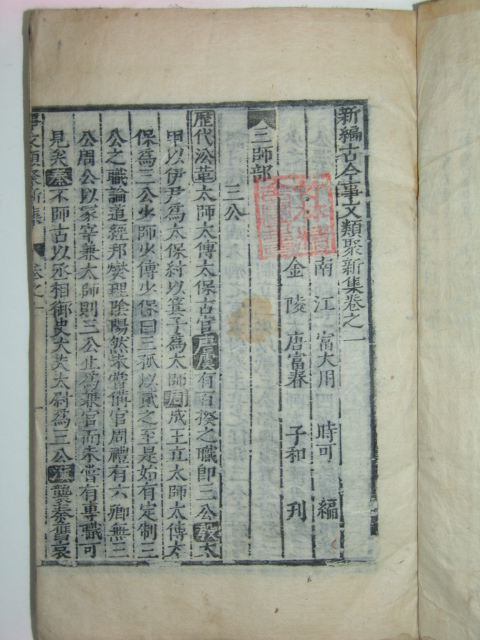 新編古今事文類聚新集卷之一
南江 富大用 時可 編
金陵 唐富春 子和 刊
三師部
三公
歷代沿革太師太傅太保古官唐虞有百揆之職即三公殷太
甲以伊尹爲太保紂以箕子爲太師周成王立太師太傅太
保爲三公少師少傅少保曰三孤以貳之至是如有定制三
公之職論道經邦燮理陰陽然未嘗備官周禮有六卿無三
公周公以冢宰兼太師則三公止爲兼官而未嘗有專職可
見矣秦不師古以丞相御史大夫太尉爲三公漢襲秦舊哀
文類聚新集 卷之一 一